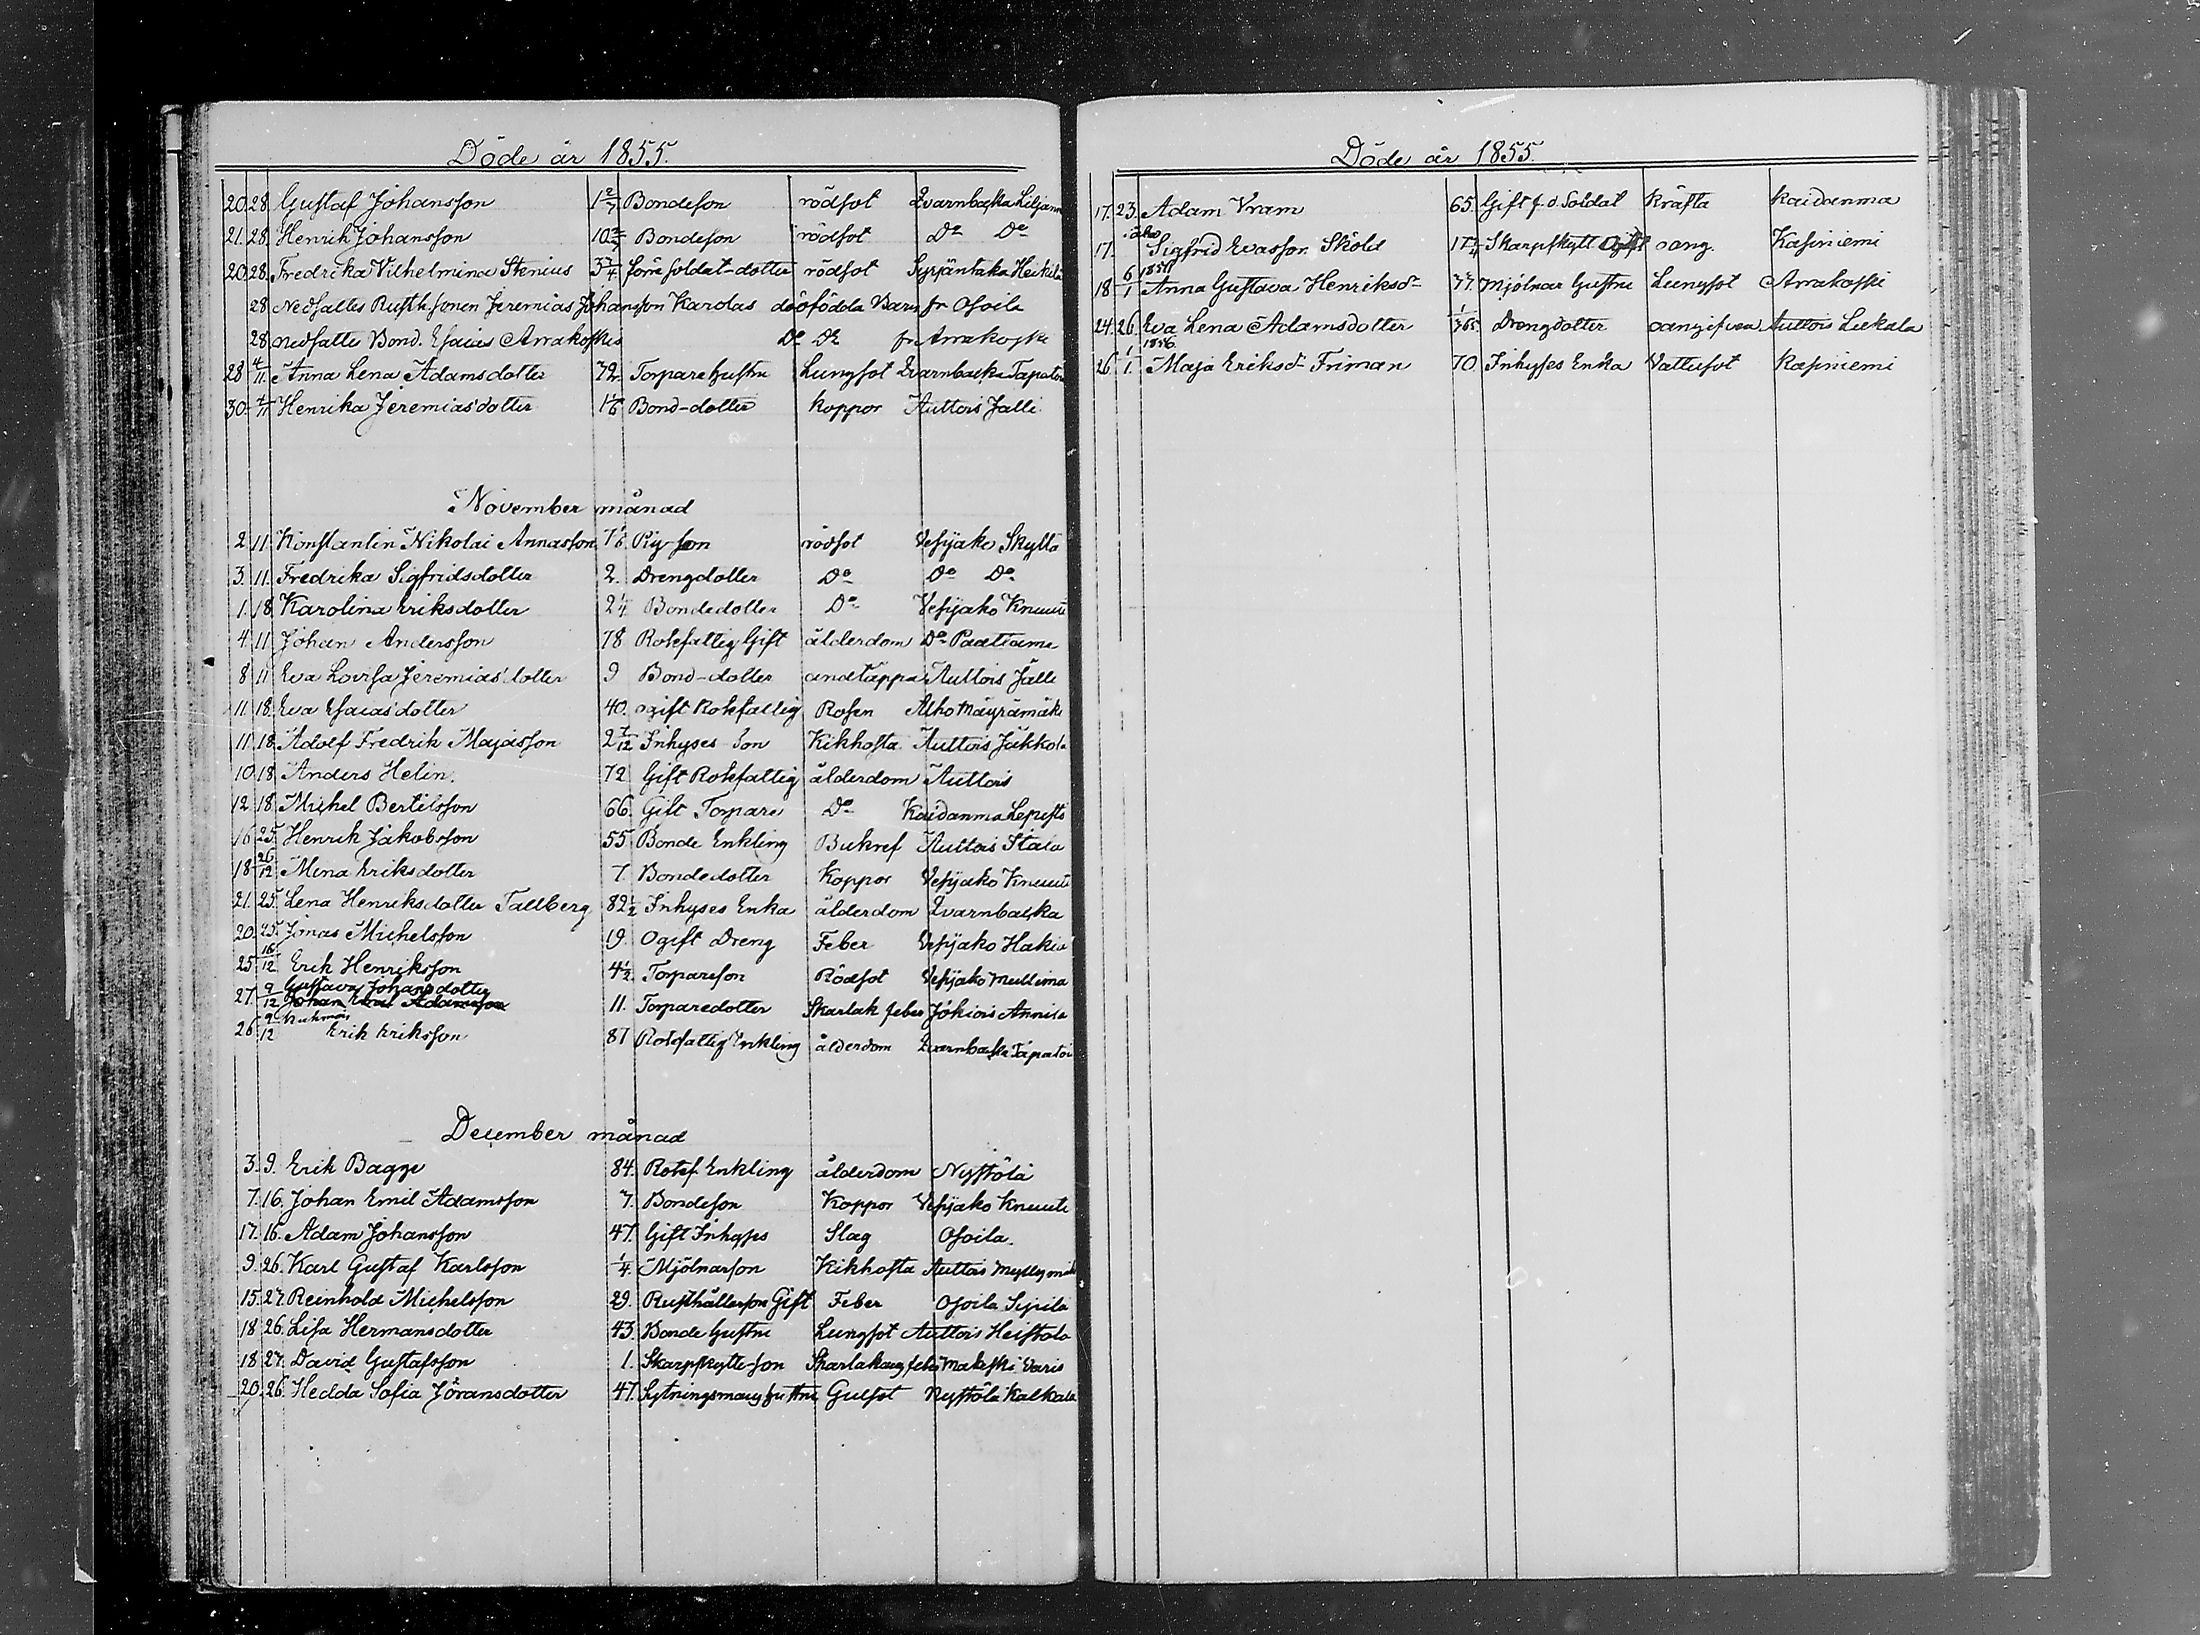 Döde år 1855.
20. 28. Gustaf Johansson 1 2/7 Bondeson rödsot Qvarnbacka Liljam
21. 28. Henrik Johansson 10 Bondeson rödsot Do Do
20. 28. Fredrika Vilhelmina Stenius 3 3/4 förre soldat-dotter rödsot Syrjäntaka Heikilä
28 Nedsattes Rusth. sonen Jeremias Johansson Karolas dödfödda Barn fr Osoila
28. nedsattes Bond. Esaias Arrakoskis Do Do fr Arrakoski
28 4/11 Anna Lena Adamsdotter 72. Torparehustru Lungsot Qvarnbacka Tapatoi
30. 4/11 Henrika Jeremiasdotter 1 1/6 Bond-dotter koppor Auttois Jalli
November månad
2 11. Konstantin Nikolai Annasson 7 1/6 Pig-son rödsot Vesijako Skyttä
3. 11. Fredrika Sigfridsdotter 2. Drengdotter Do Do Do
1. 18 Karolina Eriksdotter 2 1/4 Bondedotter Do Vesijako Knuuti
4 11 Johan Andersson 78 Rotefattig Gift ålderdom Do Paattama
8 11 Eva Lovisa Jeremiasdotter 9 Bond-dotter andtäppa Auttois Jalli
11. 18. Eva Esaiasdotter 40. ogift Rotefattig Rosen Alho Mäyrämäki
11 18. Adolf Fredrik Majasson 2 7/12 Inhyses Son Kikhosta Auttois Jäkkölä
10 18 Anders Helin. 72 Gift Rotefattig ålderdom Auttois
12 18 Michel Bertilsson 66. Gift Torpare Do Kaidanma Lepistö
16 25. Henrik Jakobsson 55 Bonde Enkling Bukref Auttois Stala
18 26/12 Mina Eriksdotter 7. Bondedotter Koppor Vesijako Knuuti
21. 25. Lena Henriksdotter Tallberg 82 1/2 Inhyses Enka ålderdom Qvarnbacka
20. 25. Jonas Michelsson 19. Ogift Dreng Feber Vesijako Hakia
25 16/12 Erik Henriksson 4 1/2 Torpareson Rödsot Vesijako Mullima
27. 9/12 Gustava Johansdotter Johan Emil Adamsson 11. Torparedotter Skarlak feber Jokiois Annila
26. 9/12 Kuhmois Erik Eriksson 87 Rotefattig Enkling ålderdom Qvarnbacka Tapatoi
December månad
3. 9. Erik Bagge 84. Rotef. Enkling ålderdom Nystölä
7. 16. Johan Emil Adamsson 7. Bondeson Koppor Vesijako Knuuti
17. 16. Adam Johansson 47. Gift Inhyses Slag Osoila.
9. 26. Karl Gustaf Karlsson 1/4. Mjölnarson Kikhosta Auttois Myllymäki
15. 27. Reinhold Michelsson 29. Rusthållarson Gift Feber Osoila Sipilä
18 26. Lisa Hermansdotter 43. Bonde hustru Lungsot Auttois Heistala
18 27. David Gustafsson 1. Skarpskytte-son Skarlakans feber Maakeski Varis
20. 26. Hedda Sofia Jöransdotter 47. Sytningsmans hustru Gulsot Nystölä Kalkala
Döde år 1855.
17. 23. Adam Vram 65. Gift f.d. Soldat kräfta Kaidanma
17. i Åbo Sigfrid Evasson Sköld 17 Skarpskytt Ogift oang. Kasiniemi
18 6/1 1856 Anna Gustava Henriksdr 77. Mjölnar hustru Lungsot Arrakoski
24. 26. Eva Lena Adamsdotter 1/365 Drengdotter oangifven Auttois Leekala
26. 1/1 1856 Maja Eriksdr Friman 70. Inhyses Enka Vattusot Kasiniemi